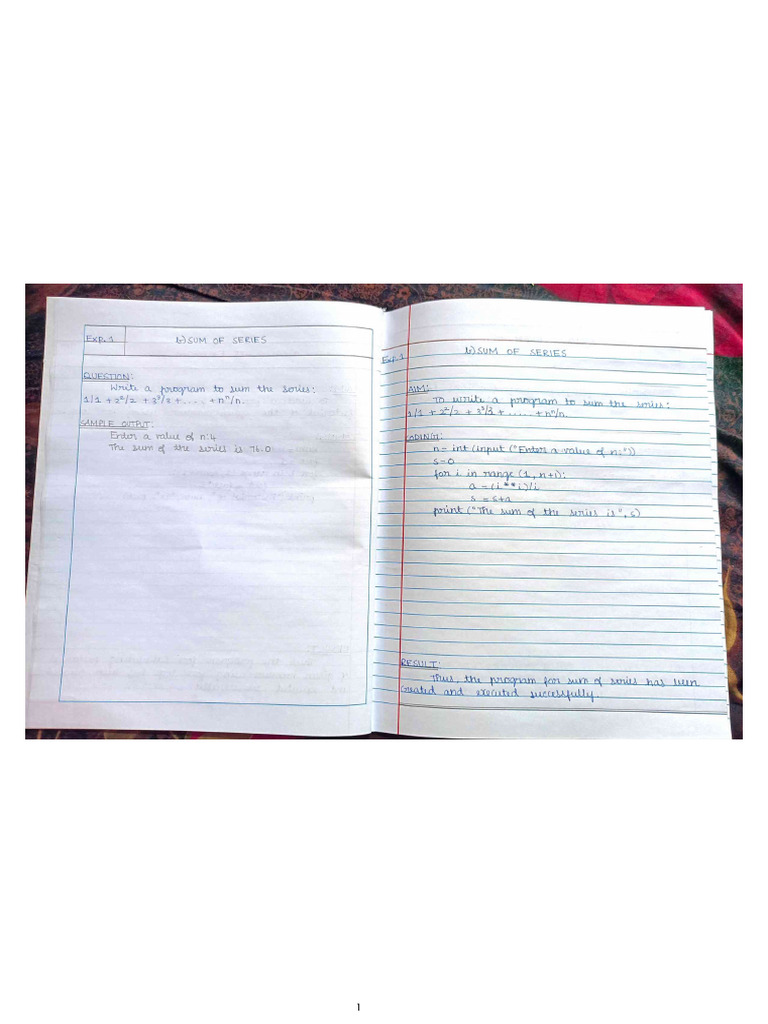 Exp. 1
b) SUM OF SERIES
QUESTION:
Write a program to sum the series:
1/1 + 2²/2 + 3³/3 + ..... + nⁿ/n.
SAMPLE OUTPUT:
Enter a value of n:4
The sum of the series is 76.0
Exp. 1
b) SUM OF SERIES
AIM:
To write a program to sum the series:
1/1 + 2²/2 + 3³/3 + ..... + nⁿ/n.
CODING:
n = int (input ("Enter a value of n:"))
s=0
for i in range (1, n+1):
a = (i**i)/i
s = s+a
print ("The sum of the series is", s)
RESULT:
Thus, the program for sum of series has been
created and executed successfully.
1